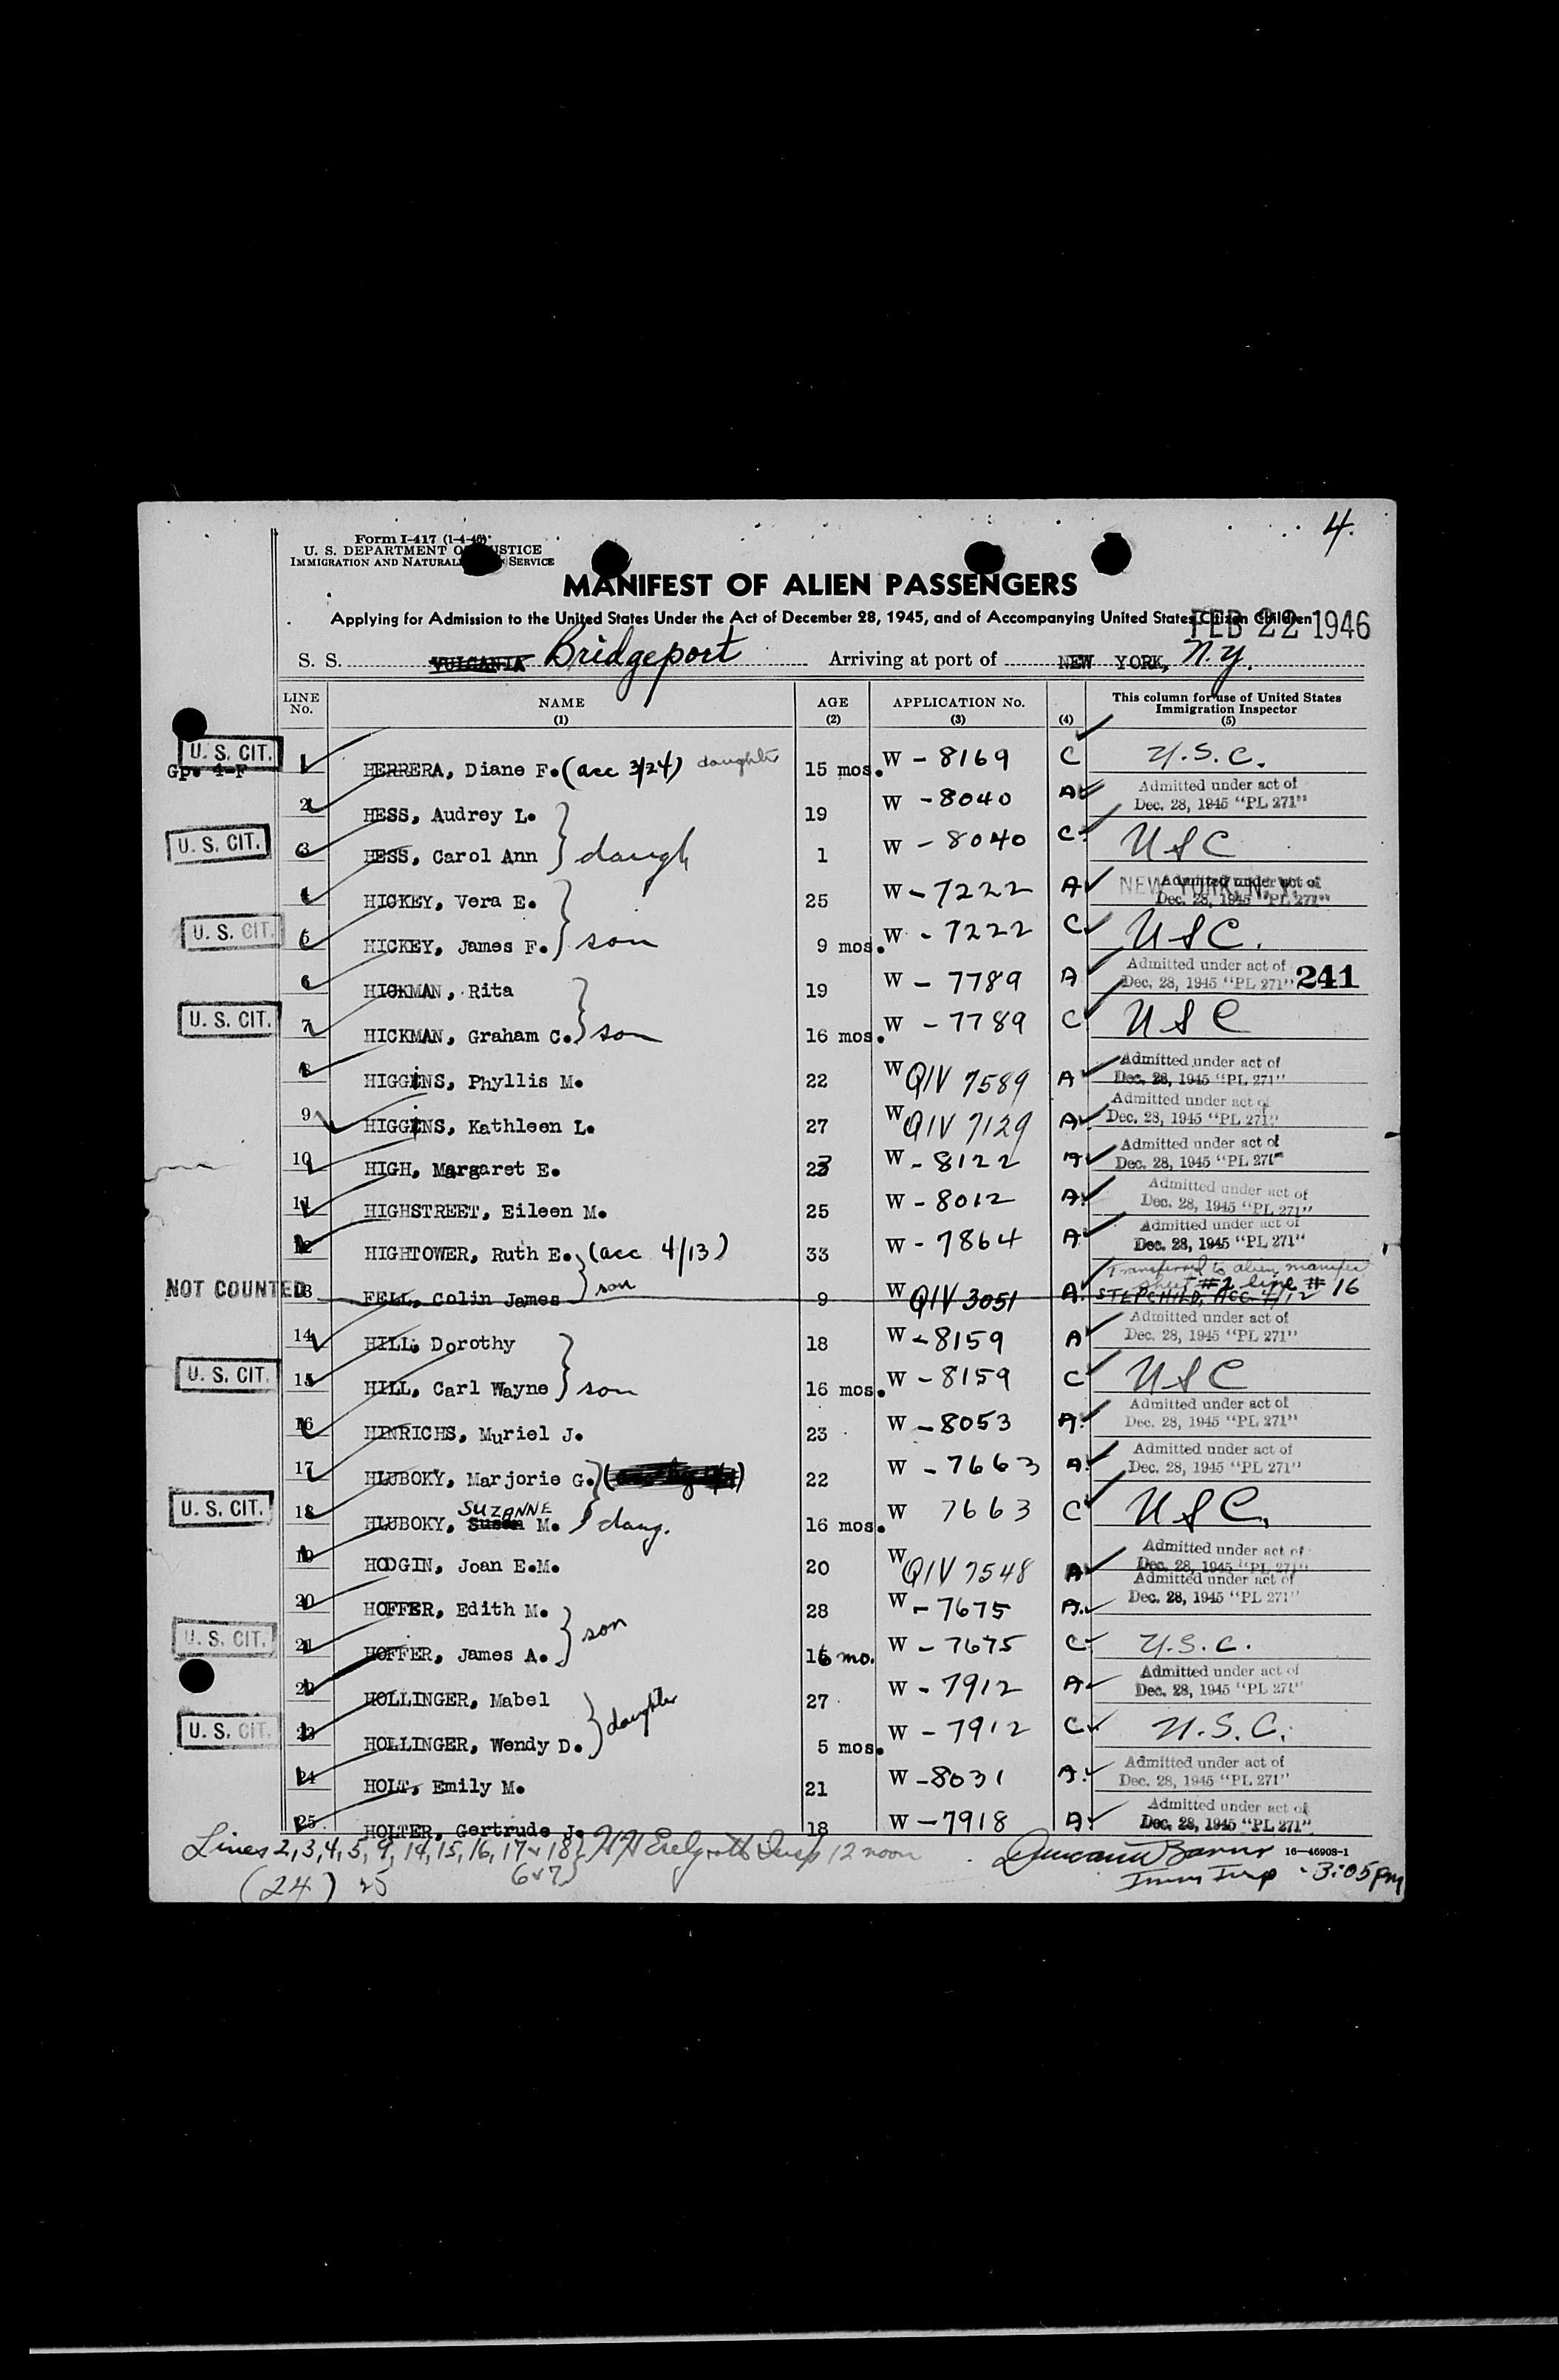 4.
Form I-417 (1-4-46)
U. S. DEPARTMENT OF JUSTICE
IMMIGRATION AND NATURALIZATION SERVICE
MANIFEST OF ALIEN PASSENGERS
Applying for Admission to the United States Under the Act of December 28, 1945, and of Accompanying United States Citizen Children
FEB 22 1946
S. S. VULCANIA Bridgeport Arriving at port of NEW YORK, N.Y.
LINE No. NAME (1) AGE (2) APPLICATION No. (3) (4) This column for use of United States Immigration Inspector (5)
U. S. CIT. Gp. 4-F 1 HERRERA, Diane F. (acc 3/24) daughter 15 mos. W - 8169 C U.S.C.
2 HESS, Audrey L. 19 W - 8040 A Admitted under act of Dec. 28, 1945 "PL 271"
U. S. CIT. 3 HESS, Carol Ann } daugh 1 W - 8040 C USC
4 HICKEY, Vera E. 25 W - 7222 A NEW YORK, N.Y. Admitted under act of Dec. 28, 1945 "PL 271"
U. S. CIT. 5 HICKEY, James F. } son 9 mos. W - 7222 C USC.
6 HICKMAN, Rita 19 W - 7789 A Admitted under act of Dec. 28, 1945 "PL 271" 241
U. S. CIT. 7 HICKMAN, Graham C. } son 16 mos. W - 7789 C USC
8 HIGGINS, Phyllis M. 22 W QIV 7589 A Admitted under act of Dec. 28, 1945 "PL 271"
9 HIGGINS, Kathleen L. 27 W QIV 7129 A Admitted under act of Dec. 28, 1945 "PL 271"
10 HIGH, Margaret E. 23 W - 8122 A Admitted under act of Dec. 28, 1945 "PL 271"
11 HIGHSTREET, Eileen M. 25 W - 8012 A Admitted under act of Dec. 28, 1945 "PL 271"
12 HIGHTOWER, Ruth E. (acc 4/13) 33 W - 7864 A Admitted under act of Dec. 28, 1945 "PL 271"
NOT COUNTED 13 FELL, Colin James } son 9 W QIV 3051 A Transferred to alien manifest sheet #2 line # 16 STEPCHILD, ACC. 4/12
14 HILL, Dorothy 18 W - 8159 A Admitted under act of Dec. 28, 1945 "PL 271"
U. S. CIT. 15 HILL, Carl Wayne } son 16 mos. W - 8159 C USC
16 HINRICHS, Muriel J. 23 W - 8053 A Admitted under act of Dec. 28, 1945 "PL 271"
17 HLUBOKY, Marjorie G. 22 W - 7663 A Admitted under act of Dec. 28, 1945 "PL 271"
U. S. CIT. 18 HLUBOKY, Susan SUZANNE M. } daug. 16 mos. W 7663 C USC.
19 HODGIN, Joan E.M. 20 W QIV 7548 A Admitted under act of Dec. 28, 1945 "PL 271"
20 HOFFER, Edith M. 28 W - 7675 A. Admitted under act of Dec. 28, 1945 "PL 271"
U. S. CIT. 21 HOFFER, James A. } son 16 mo. W - 7675 C U.S.C.
22 HOLLINGER, Mabel 27 W - 7912 A Admitted under act of Dec. 28, 1945 "PL 271"
U. S. CIT. 23 HOLLINGER, Wendy D. } daughter 5 mos. W - 7912 C U.S.C.
24 HOLT, Emily M. 21 W - 8031 A. Admitted under act of Dec. 28, 1945 "PL 271"
25 HOLTER, Gertrude J. 18 W - 7918 A. Admitted under act of Dec. 28, 1945 "PL 271"
Lines 2,3,4,5, 9, 14, 15, 16, 17 & 18 } 12 noon
6 & 7 }
16—46908-1
(24) 25 Imm Insp - 3:05 PM